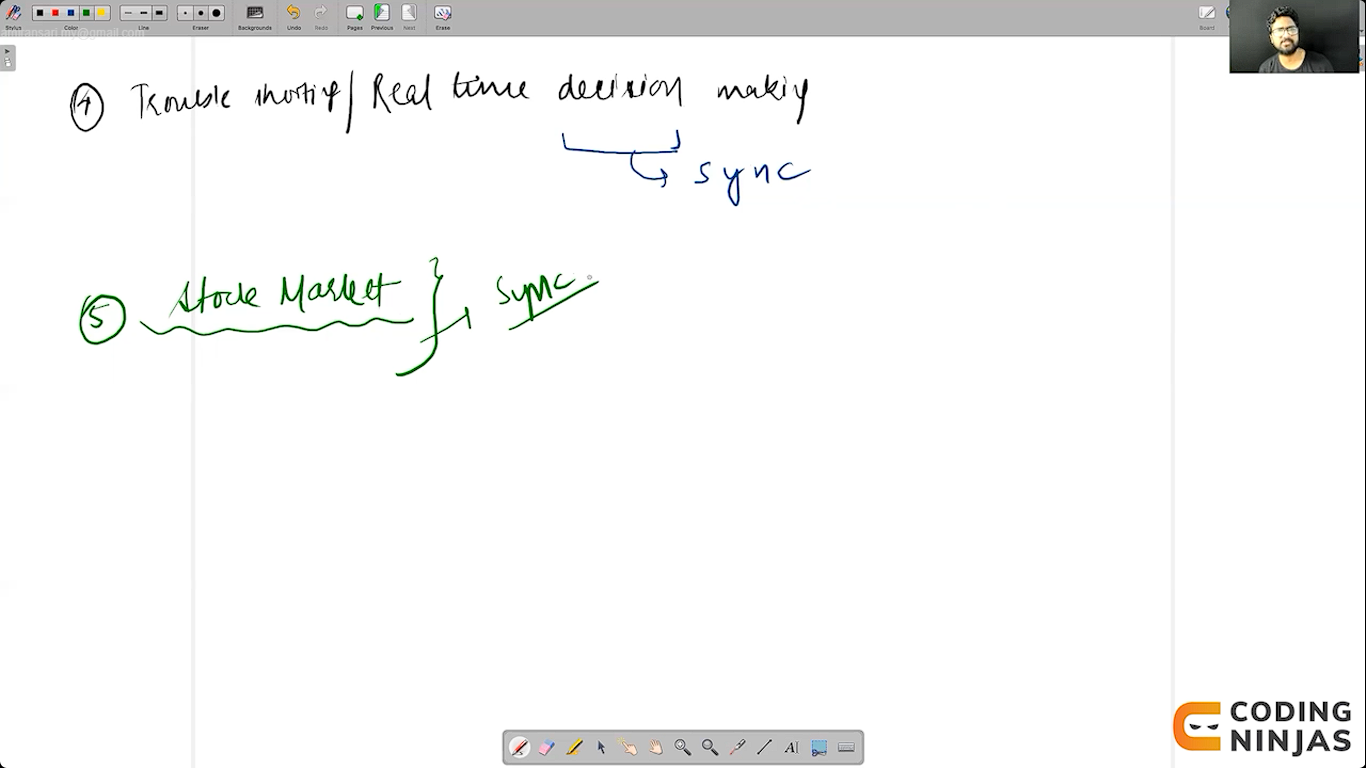 Stylus Color Line Eraser Backgrounds Undo Redo Pages Previous Next Erase Board
④ Trouble shooting / Real time decision making
sync
⑤ Stock Market } → Sync
CODING
NINJAS